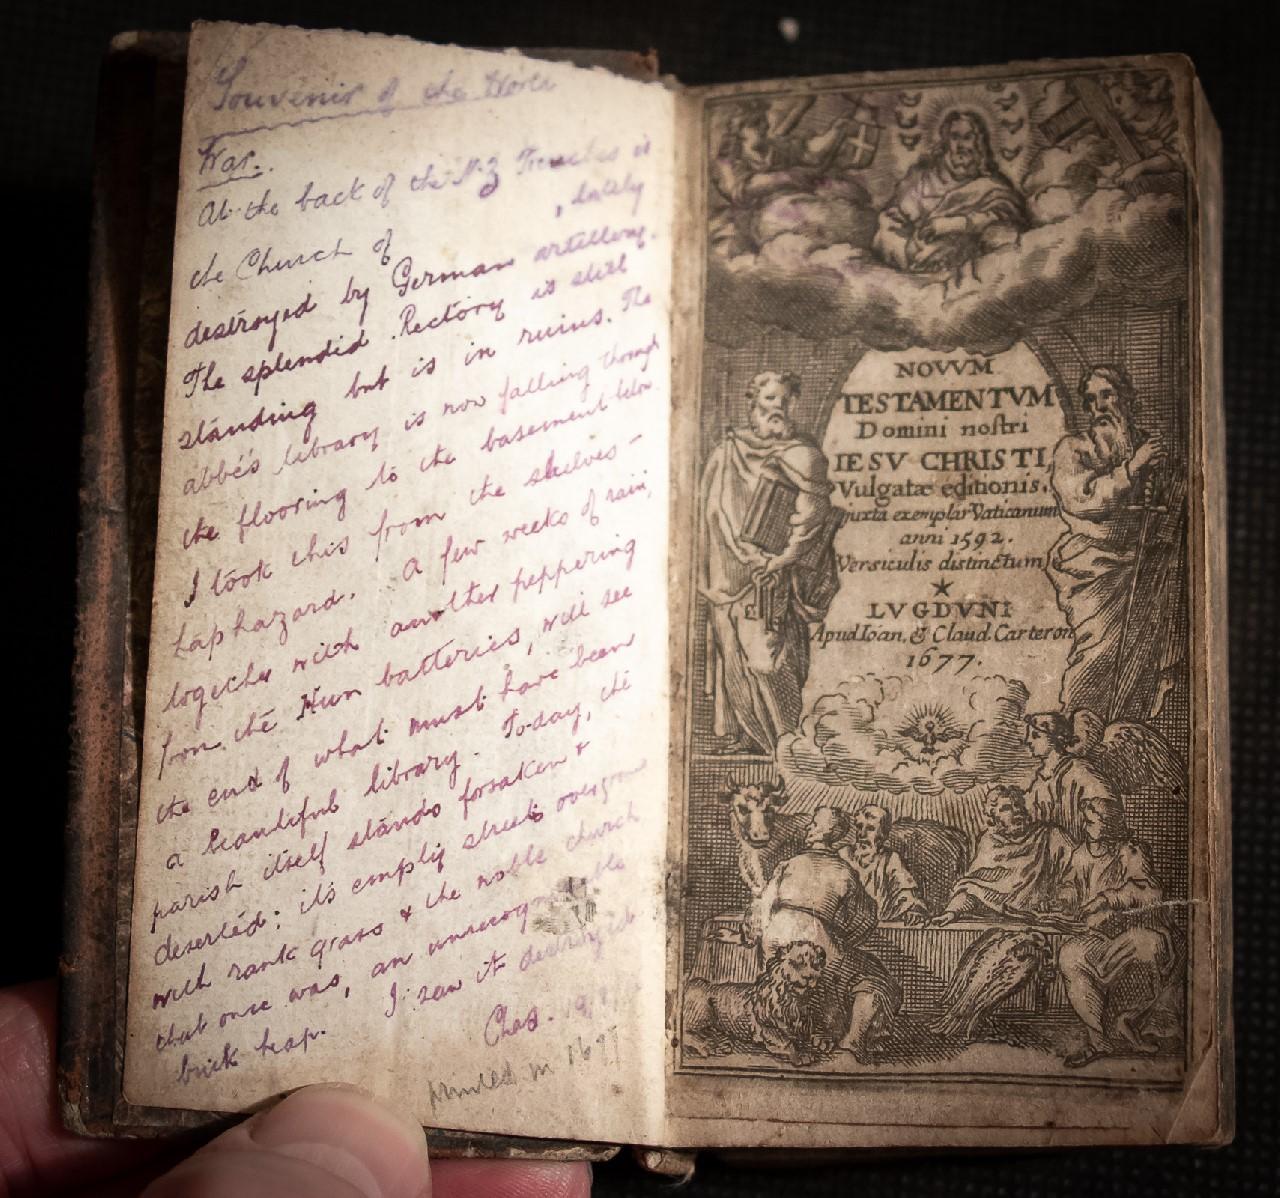 Souvenir of the World
War.
At the back of the N.Z Trenches is
the Church of , lately
destroyed by German artillery.
The splendid Rectory is still
standing but is in ruins. The
abbé's library is now falling through
the flooring to the basement below.
I took this from the shelves –
haphazard. A few weeks of rain,
together with another peppering
from the Hun batteries, will see
the end of what must have been
a beautiful library. Today, the
parish itself stands forsaken &
deserted; it's empty streets overgrown
with rank grass & the noble church
that once was, an unrecognizable
brick heap. I saw it destroyed
Chas.
printed in 1677
NOVVM
TESTAMENTVM
Domini nostri
IESV CHRISTI,
Vulgatæ editionis.
juxta exemplar Vaticanum
anni 1592.
Versiculis distinctum
★
LVGDVNI
Apud Ioan. & Claud. Carteron
1677.